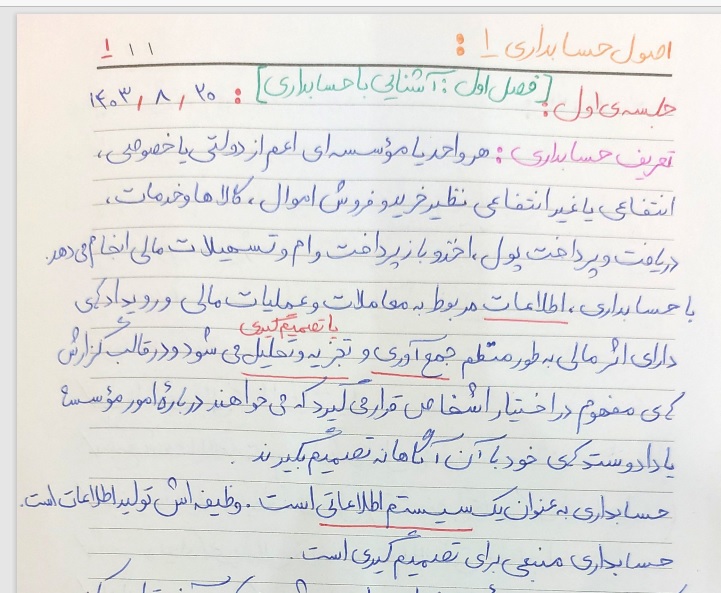 اصول حسابداری ۱ :
۱ ۱ ۱
جلسه‌ی اول: [فصل اول: آشنایی با حسابداری] : ۲۰ / ۸ / ۱۴۰۳
تعریف حسابداری: هر واحد یا مؤسسه‌ای اعم از دولتی یا خصوصی،
انتفاعی یا غیر انتفاعی نظیر خرید و فروش اموال، کالاها و خدمات،
دریافت و پرداخت پول، اخذ و بازپرداخت وام و تسهیلات مالی انجام می‌دهد.
با حسابداری، اطلاعات مربوط به معاملات و عملیات مالی و رویدادهای
یا تصمیم‌گیری
دارای اثر مالی به طور منظم جمع آوری و تجزیه و تحلیل می شود و در قالب گزارش
های مفهوم در اختیار اشخاص قرار می گیرد که می خواهند درباره امور مؤسسه
یا داد و ستدهای خود با آن آگاهانه تصمیم بگیرند.
حسابداری به عنوان یک سیستم اطلاعاتی است. وظیفه اش تولید اطلاعات است.
حسابداری منبعی برای تصمیم گیری است.